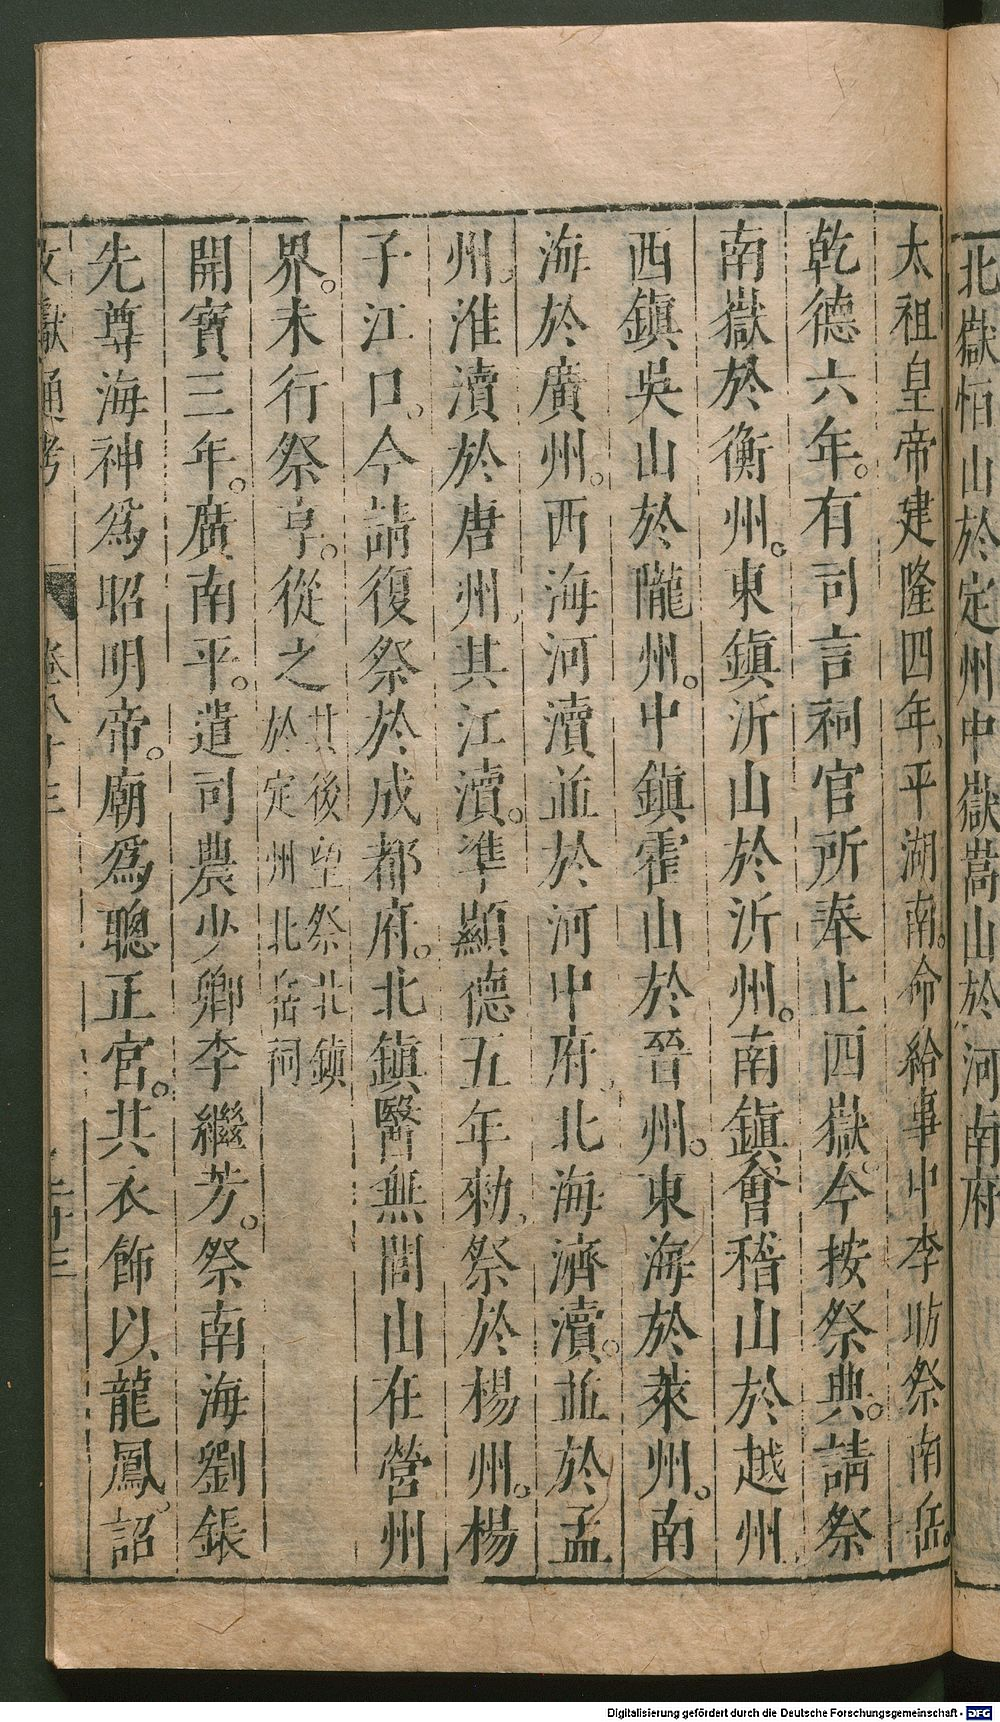 北嶽恒山於定州中嶽嵩山於河南府
太祖皇帝建隆四年平湖南。命給事中李昉祭南岳。
乾德六年。有司言祠官所奉止四嶽。今按祭典。請祭
南嶽於衡州。東鎮沂山於沂州。南鎮會稽山於越州
西鎮吳山於隴州。中鎮霍山於晉州。東海於萊州。南
海於廣州。西海河瀆並於河中府、北海濟瀆。並於孟
州、淮瀆於唐州、其江瀆。準顯德五年勑、祭於楊州。楊
子江口。今請復祭於成都府。北鎮醫無閭山在營州
界。未行祭享。從之其後望祭北鎮於定州北岳祠
開寶三年。廣南平。遣司農少卿李繼芳。祭南海劉鋹
先尊海神爲昭明帝。廟爲聰正宮。其衣飾以龍鳳。詔
文獻通考 卷八十三 二十三
Digitalisierung gefördert durch die Deutsche Forschungsgemeinschaft - DFG